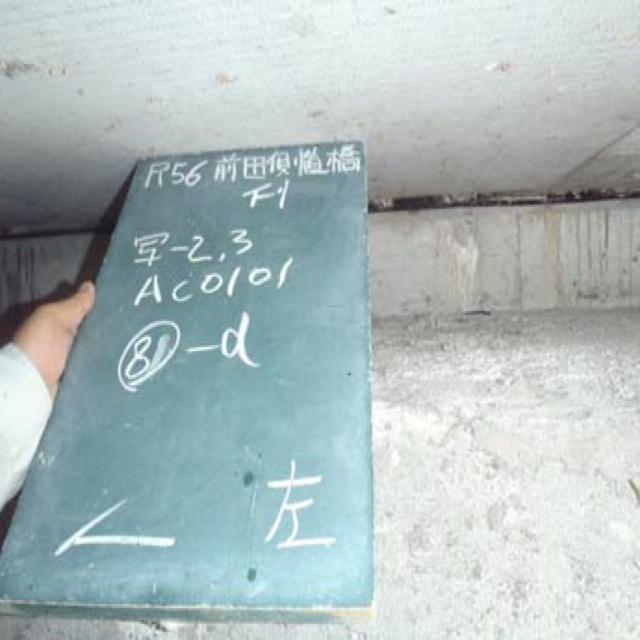 R56 前田側道橋
写-2,3
AC0101
⑧-d
左